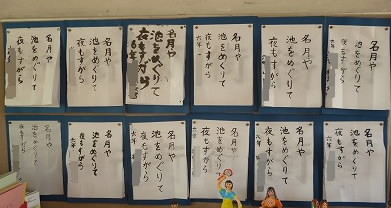 名月や
池をめぐりて
夜もすがら
六年
名月や
池をめぐりて
夜もすがら
六年
名月や
池をめぐりて
夜もすがら
6年
名月や
池をめぐりて
夜もすがら
六年
名月や
池をめぐりて
夜もすがら
名月や
池をめぐりて
夜もすがら
名月や
池をめぐりて
夜もすがら
名月や
池をめぐりて
夜もすがら
六年
名月や
池をめぐりて
夜もすがら
六年
名月や
池をめぐりて
夜もすがら
六年
名月や
池をめぐりて
夜もすがら
六年
名月や
池をめぐりて
夜もすがら
六年